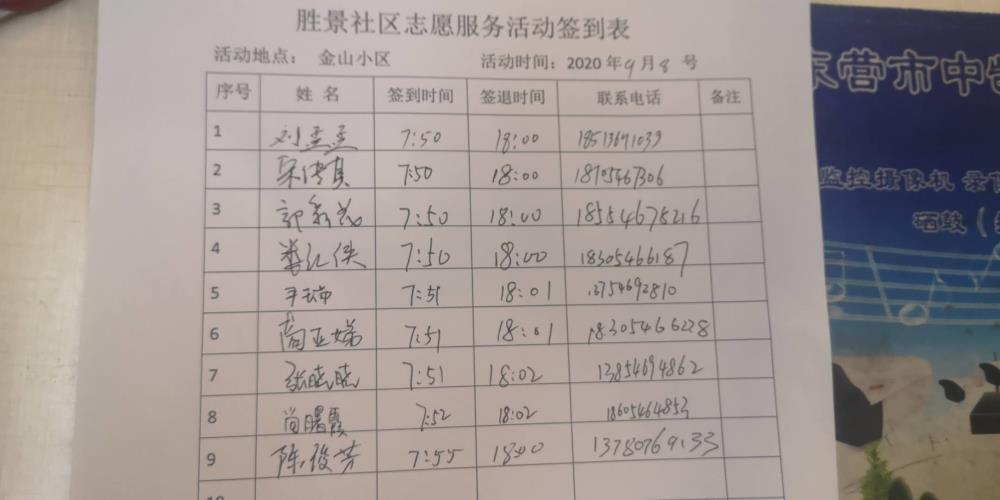 胜景社区志愿服务活动签到表
活动地点： 金山小区 活动时间：2020年9月8号
序号 姓名 签到时间 签退时间 联系电话 备注
1 刘孟孟 7:50 18:00 18513691039
2 7:50 18:00 18705467306
3 7:50 18:00 18554675216
4 7:50 18:00 18305466187
5 7:51 18:01
6 商亚娣 7:51 18:01 18305466228
7 张晓晓 7:51 18:02 13854694862
8 尚曙霞 7:52 18:02 18605464853
9 陈俊芳 7:55 18:00 13780769133
10
东营市中
监控摄像机 录
硒鼓（